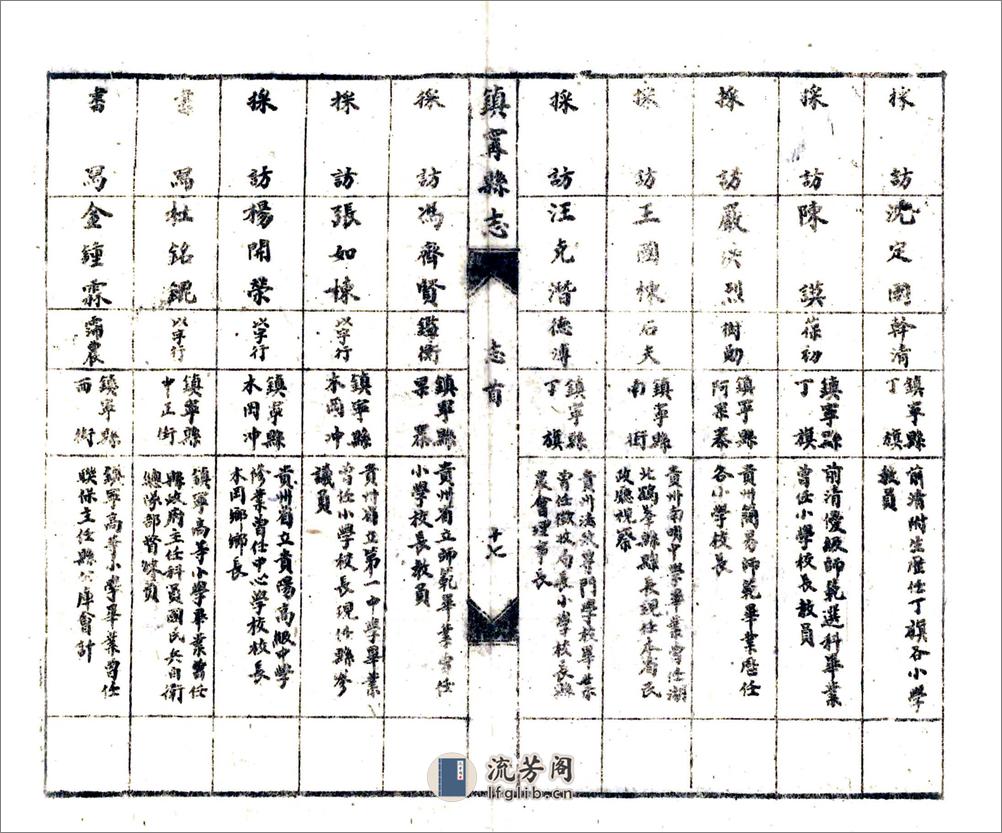 採訪
沈定國
幹清
鎮寧縣
丁旗
前清附生歷任丁旗各小學
教員
採訪
陳謨
葆初
鎮寧縣
丁旗
前清優級師範選科畢業
曾任小學校長教員
採訪
嚴洪烈
樹勛
鎮寧縣
阿果寨
貴州簡易師範畢業歷任
各小學校長
採訪
王國棟
石夫
鎮寧縣
南街
貴州南明中學畢業曾任湖
北鶴峯縣縣長現任本省民
政廳視察
採訪
汪克潛
德溥
鎮寧縣
丁旗
貴州法政專門學校畢業
曾任徵收局長小學校長縣
農會理事長
鎮寧縣志
志首
十七
採訪
馮齊賢
鑑衡
鎮寧縣
果寨
貴州省立師範畢業曾任
小學校長教員
採訪
張如棟
以字行
鎮寧縣
木岡冲
貴州省立第一中學畢業
曾任小學校長現任縣參
議員
採訪
楊開榮
以字行
鎮寧縣
木岡冲
貴州省立貴陽高級中學
修業曾任中心學校校長
木岡鄉鄉長
書寫
杜銘錕
以字行
鎮寧縣
中正街
鎮寧高等小學畢業曾任
縣政府主任科員國民兵自衛
總隊部督練員
書寫
金鍾霖
霈農
鎮寧縣
西街
鎮寧高等小學畢業曾任
聯保主任縣公庫會計
流芳阁
lfglib.cn